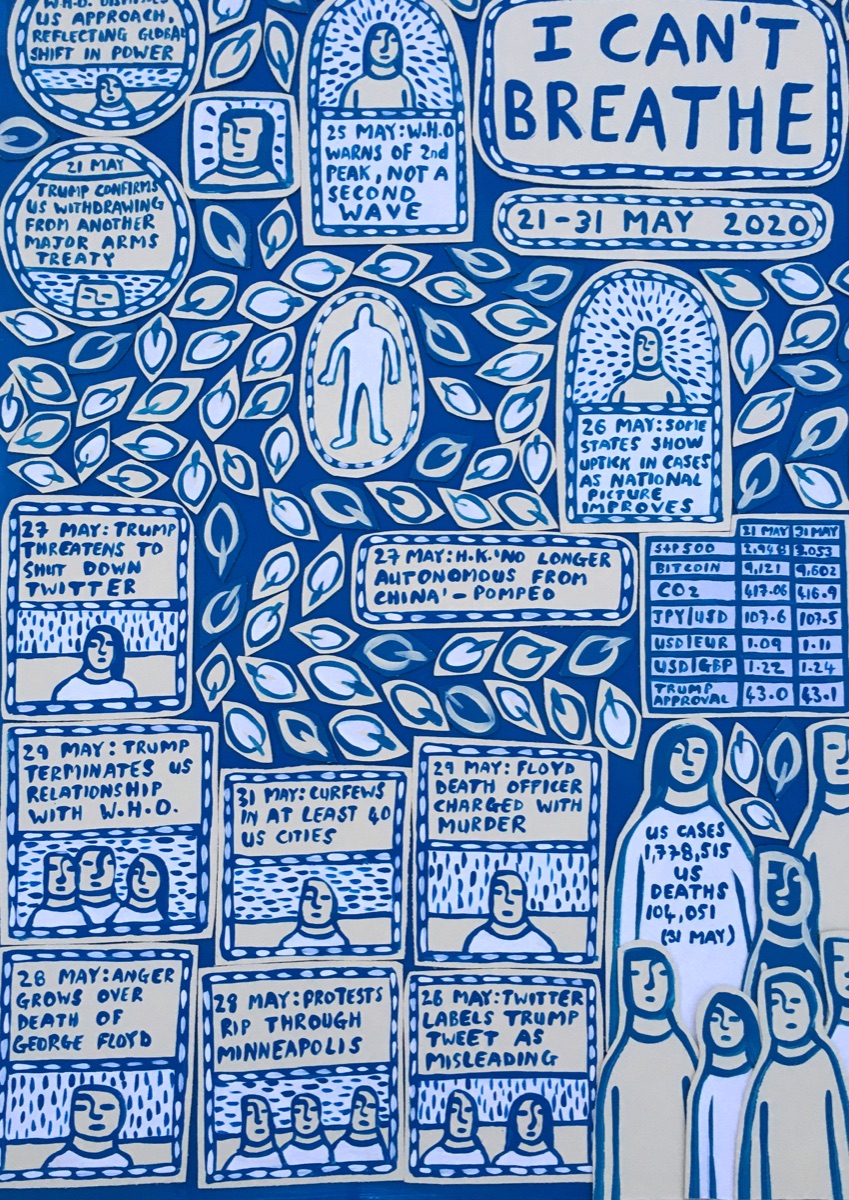 W.H.O.
US APPROACH,
REFLECTING GLOBAL
SHIFT IN POWER
21 MAY
TRUMP CONFIRMS
US WITHDRAWING
FROM ANOTHER
MAJOR ARMS
TREATY
25 MAY: W.H.O
WARNS OF 2nd
PEAK, NOT A
SECOND
WAVE
I CAN'T
BREATHE
21-31 MAY 2020
26 MAY: SOME
STATES SHOW
UPTICK IN CASES
AS NATIONAL
PICTURE
IMPROVES
27 MAY: TRUMP
THREATENS TO
SHUT DOWN
TWITTER
27 MAY: H.K. 'NO LONGER
AUTONOMOUS FROM
CHINA' - POMPEO
21 MAY 31 MAY
S+P500 2.948 3.053
BITCOIN 9,121 9,602
CO2 417.06 416.9
JPY/USD 107.6 107.5
USD/EUR 1.09 1.11
USD/GBP 1.22 1.24
TRUMP
APPROVAL 43.0 43.1
29 MAY: TRUMP
TERMINATES US
RELATIONSHIP
WITH W.H.O.
31 MAY: CURFEWS
IN AT LEAST 40
US CITIES
29 MAY: FLOYD
DEATH OFFICER
CHARGED WITH
MURDER
US CASES
1,778,515
US
DEATHS
104,051
(31 MAY)
28 MAY: ANGER
GROWS OVER
DEATH OF
GEORGE FLOYD
29 MAY: PROTESTS
RIP THROUGH
MINNEAPOLIS
26 MAY: TWITTER
LABELS TRUMP
TWEET AS
MISLEADING